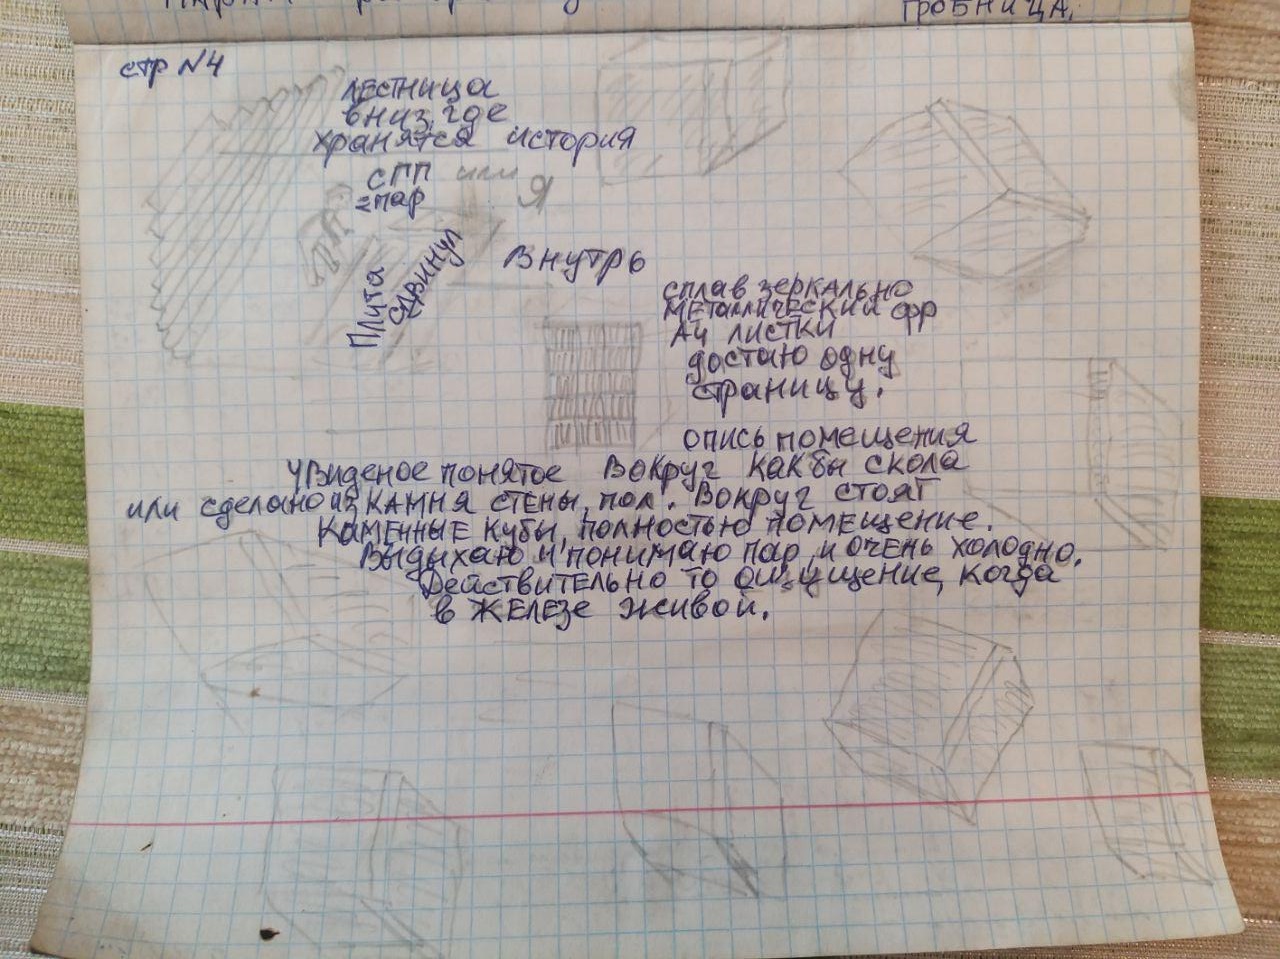 ГРОБНИЦА.
стр №4
ЛЕСТНИЦА
вниз, где
хранятся история
СПП или Я
=пар
Плита
СДВИНУЛ
Внутрь
сплав зеркально
металлический фр
А4 листки
достаю одну
страницу.
опись помещения
увиденое понятое Вокруг как бы скола
или сделано из камня стены, пол. Вокруг стоят
Каменные кубы, полностью помещение.
Выдыхаю и понимаю пар и очень холодно.
Действительно то ощущение, когда
в железе живой.